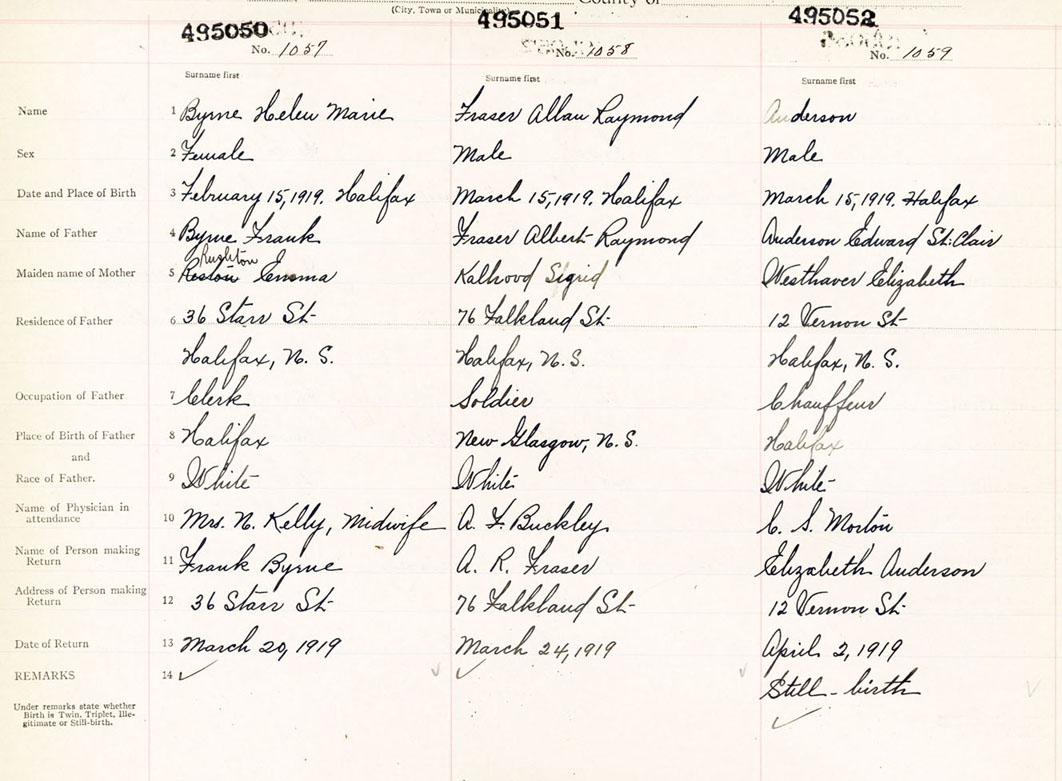 (City, Town or Municipality) County of
495050 495051 495052
No. 1057 No. 1058 No. 1059
Surname first Surname first Surname first
Name 1 Byrne Helen Marie Fraser Allan Raymond Anderson
Sex 2 Female Male Male
Date and Place of Birth 3 February 15, 1919. Halifax March 15, 1919. Halifax March 15, 1919. Halifax
Name of Father 4 Byrne Frank Fraser Albert Raymond Anderson Edward St. Clair
Rushton
Maiden name of Mother 5 Reston Emma Kalhood Sigrid Westhaver Elizabeth
Residence of Father 6 36 Starr St. 76 Falkland St. 12 Vernon St.
Halifax, N. S. Halifax, N. S. Halifax, N. S.
Occupation of Father 7 Clerk Soldier Chauffeur
Place of Birth of Father 8 Halifax New Glasgow, N. S. Halifax
and
Race of Father. 9 White White White
Name of Physician in
attendance 10 Mrs. N. Kelly, Midwife A. F. Buckley C. S. Morton
Name of Person making
Return 11 Frank Byrne A. R. Fraser Elizabeth Anderson
Address of Person making
Return 12 36 Starr St. 76 Falkland St. 12 Vernon St.
Date of Return 13 March 20, 1919 March 24, 1919 April 2, 1919
REMARKS 14 ✓ ✓ Still-birth
Under remarks state whether
Birth is Twin, Triplet, Ille-
gitimate or Still-birth.